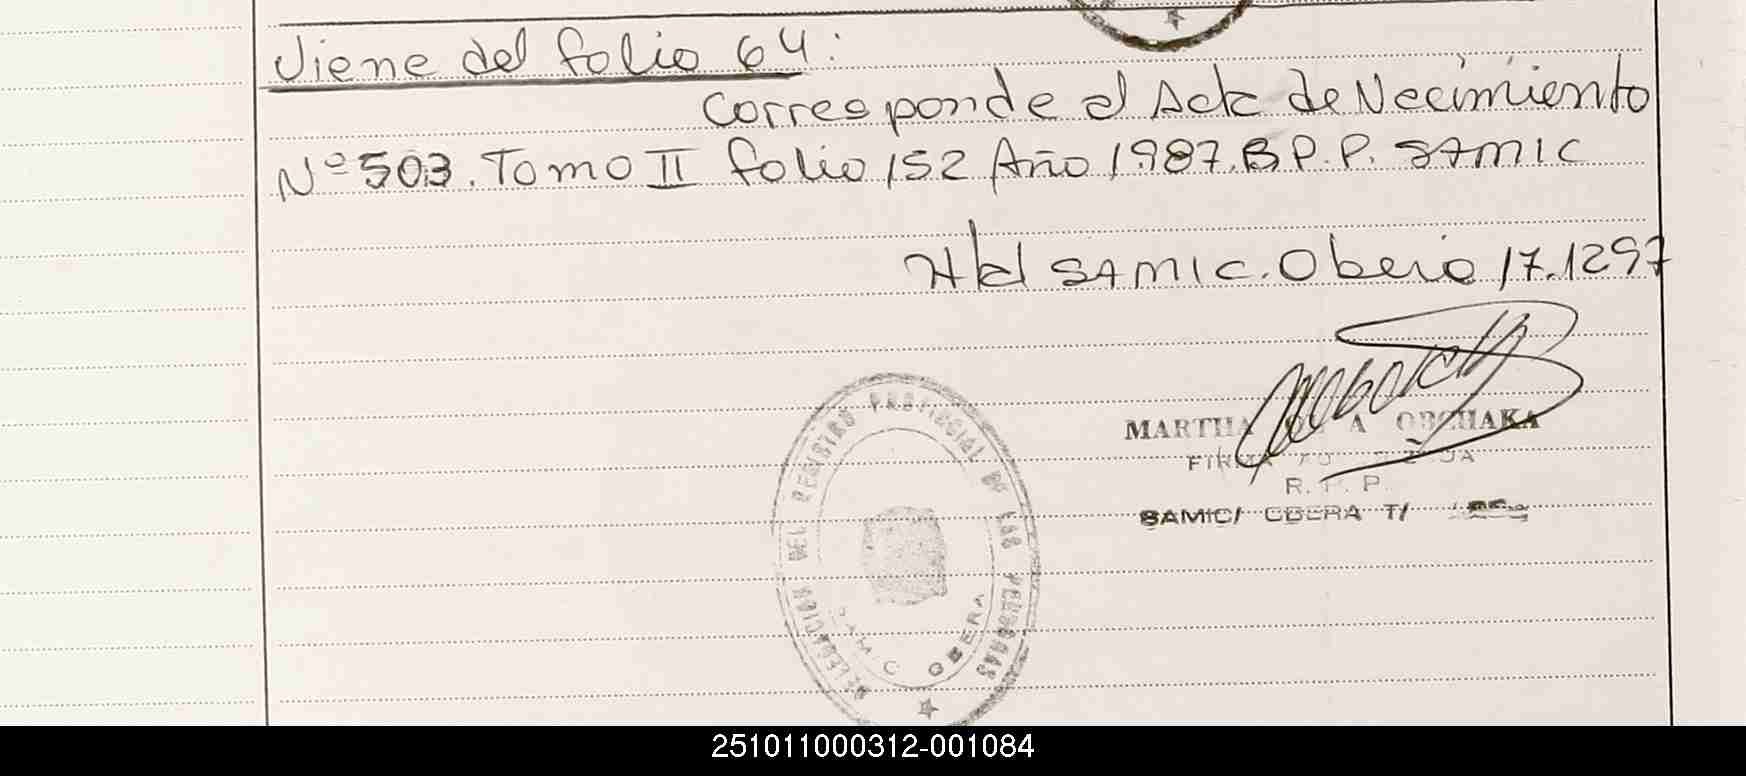 Viene del folio 64:
Corresponde al Acta de Nacimiento
Nº 503. Tomo II folio 152 Año 1987. B P. P. SAMIC
SAMIC. Obera 17.1297
MARTHA A OBCHAKA
R. P. P.
SAMIC/ OBERA T/
DELEGACION DEL REGISTRO PROVINCIAL DE LAS PERSONAS
SAMIC OBERA
251011000312-001084